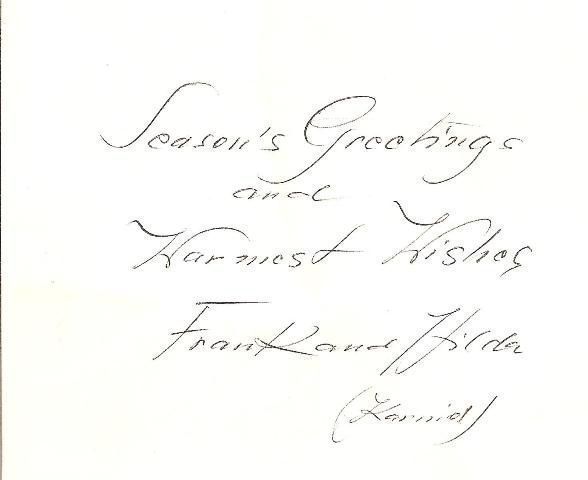 Season's Greetings
and
Warmest Wishes
Frank and Hilda
(Karnid)